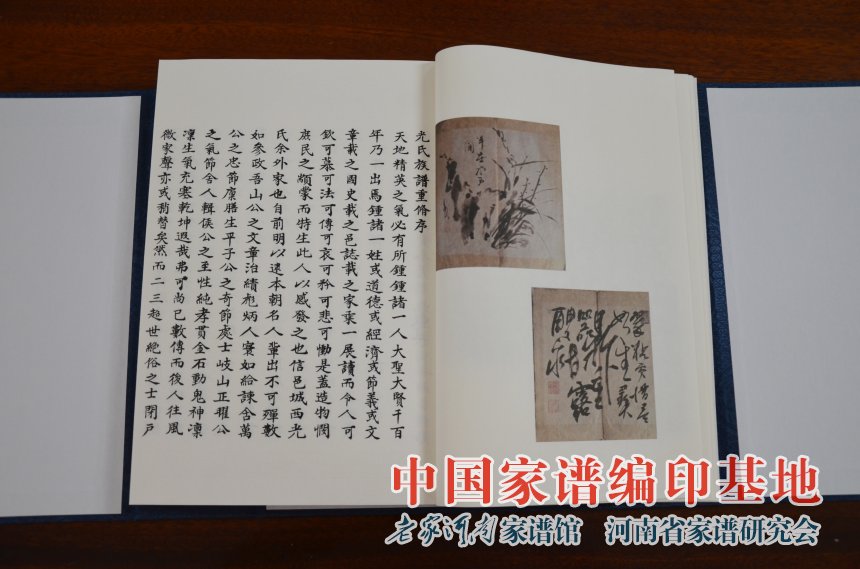 尤氏族譜重脩序
天地精英之氣必有所鍾鍾諸一人大聖大賢千百
年乃一出焉鍾諸一姓或道德或經濟或節義或文
章載之國史載之邑誌載之家乘一展讀而令人可
欽可慕可法可傳可哀可矜可悲可慟是蓋造物憫
庶民之顓蒙而特生此人以感發之也信邑城西尤
氏余外家也自前明以逮本朝名人輩出不可殫數
如參政吾山公之文章治績彪炳人寰如給諫含萬
公之忠節廩膳生平子公之奇節處士岐山正耀公
之氣節舍人輯侯公之至性純孝貫金石動鬼神凜
凜生氣充塞乾坤遐哉弗可尚已數傳而後人往風
微家聲亦或稍替矣然而二三超世絕俗之士閉戶
中国家谱编印基地
老家河南家谱馆 河南省家谱研究会